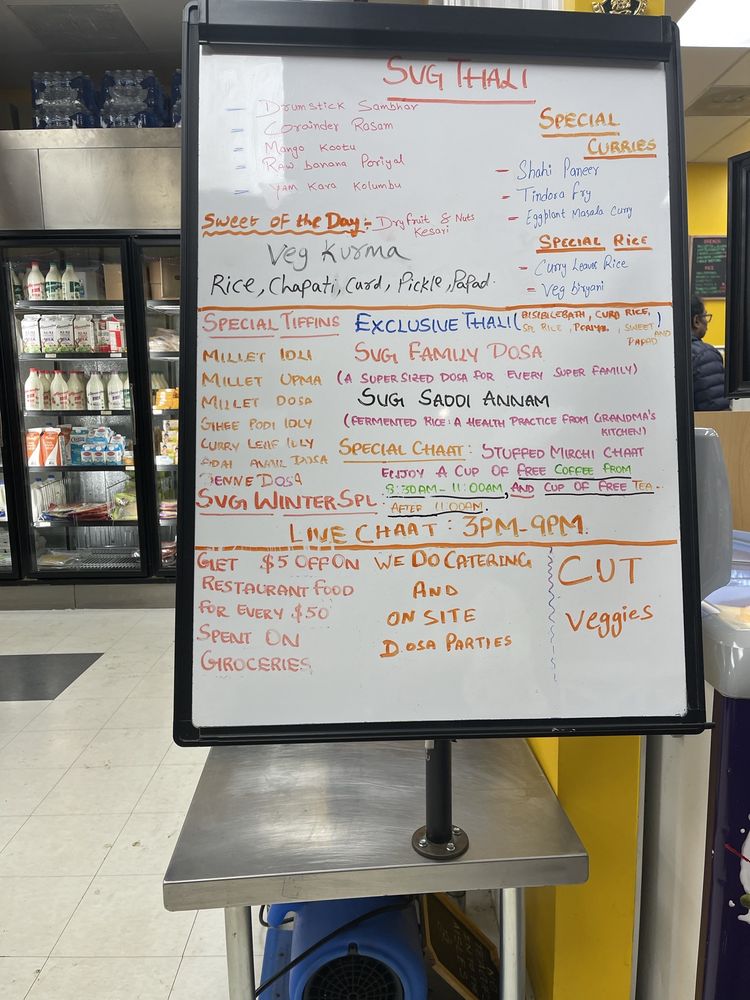 SVG THALI
- Drumstick Sambhar
- Corainder Rasam
- Mango Kootu
- Raw banana Poriyal
- Yam Kara Kolumbu
SPECIAL
CURRIES
- Shahi Paneer
- Tindora Fry
- Eggplant Masala Curry
Sweet of the Day:- Dry fruit & Nuts
Kesari
SPECIAL RICE
- Curry Leaves Rice
- Veg biryani
Veg Kurma
Rice, Chapati, Curd, Pickle, Papad.
SPECIAL TIFFINS
MILLET IDLI
MILLET UPMA
MILLET DOSA
GHEE PODI IDLY
CURRY LEAF IDLY
DOSA
BENNE DOSA
SVG WINTER SPL.
EXCLUSIVE THALI (BISIBILEBATH, CURD RICE,
SPL RICE, PORIYAL, SWEET AND
PAPAD)
SVG FAMILY DOSA
(A SUPER SIZED DOSA FOR EVERY SUPER FAMILY)
SVG SADDI ANNAM
(FERMENTED RICE: A HEALTH PRACTICE FROM GRANDMA'S
KITCHEN)
SPECIAL CHAAT: STUFFED MIRCHI CHAAT
ENJOY A CUP OF FREE COFFEE FROM
8:30AM - 11:00AM, AND CUP OF FREE TEA.
AFTER 11:00AM.
LIVE CHAAT: 3PM-9PM.
GET $5 OFF ON
RESTAURANT FOOD
FOR EVERY $50
SPENT ON
GROCERIES
WE DO CATERING
AND
ON SITE
DOSA PARTIES
CUT
Veggies